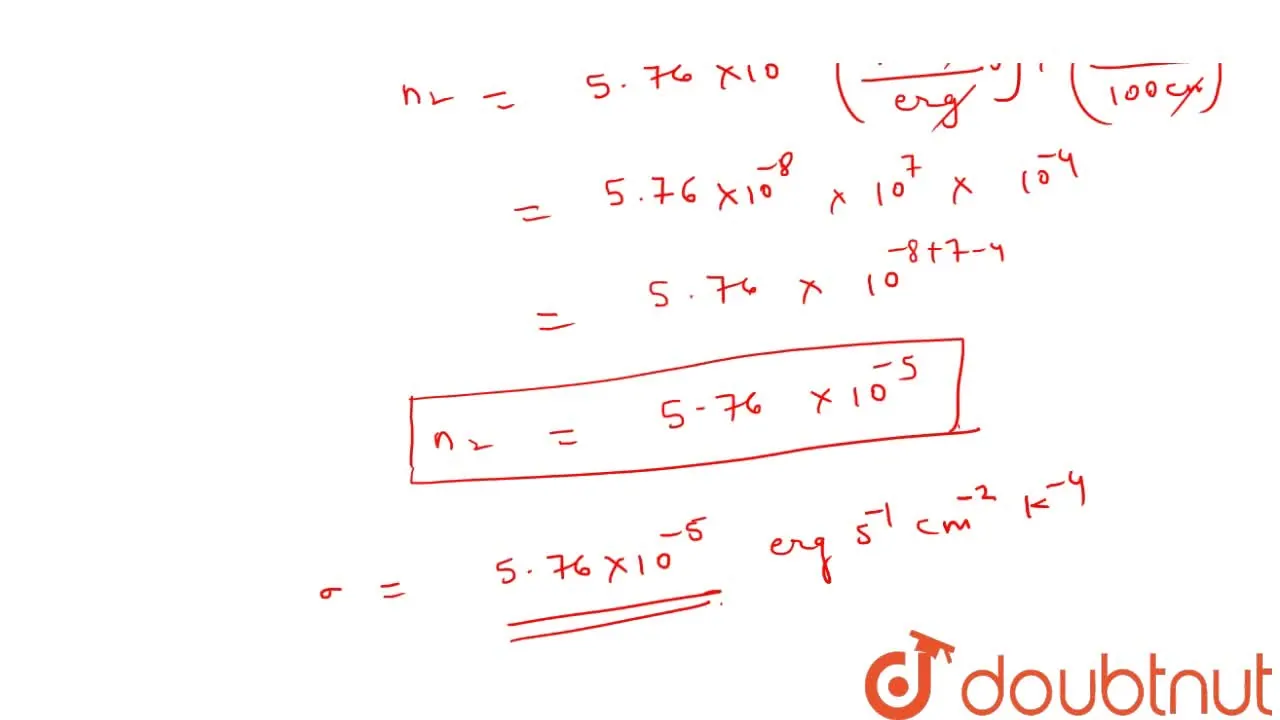 n₂ = 5.76 ×10 ( / erg ) ( / 100cm )
= 5.76 ×10⁻⁸ × 10⁷ × 10⁻⁴
= 5.76 × 10⁻⁸⁺⁷⁻⁴
n₂ = 5.76 ×10⁻⁵
σ = 5.76×10⁻⁵ erg s⁻¹ cm⁻² K⁻⁴
doubtnut